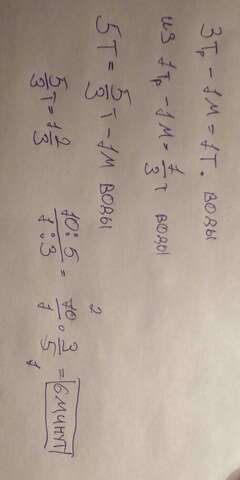 3тр - 1м = 1т. воды
из 1тр - 1м = 1/3 т воды
5т = 5/3 т - 1м воды
5/3 т = 1 2/3
10:5 / 1:3 = 10/1 · 3/5 = 6 минут
2
1